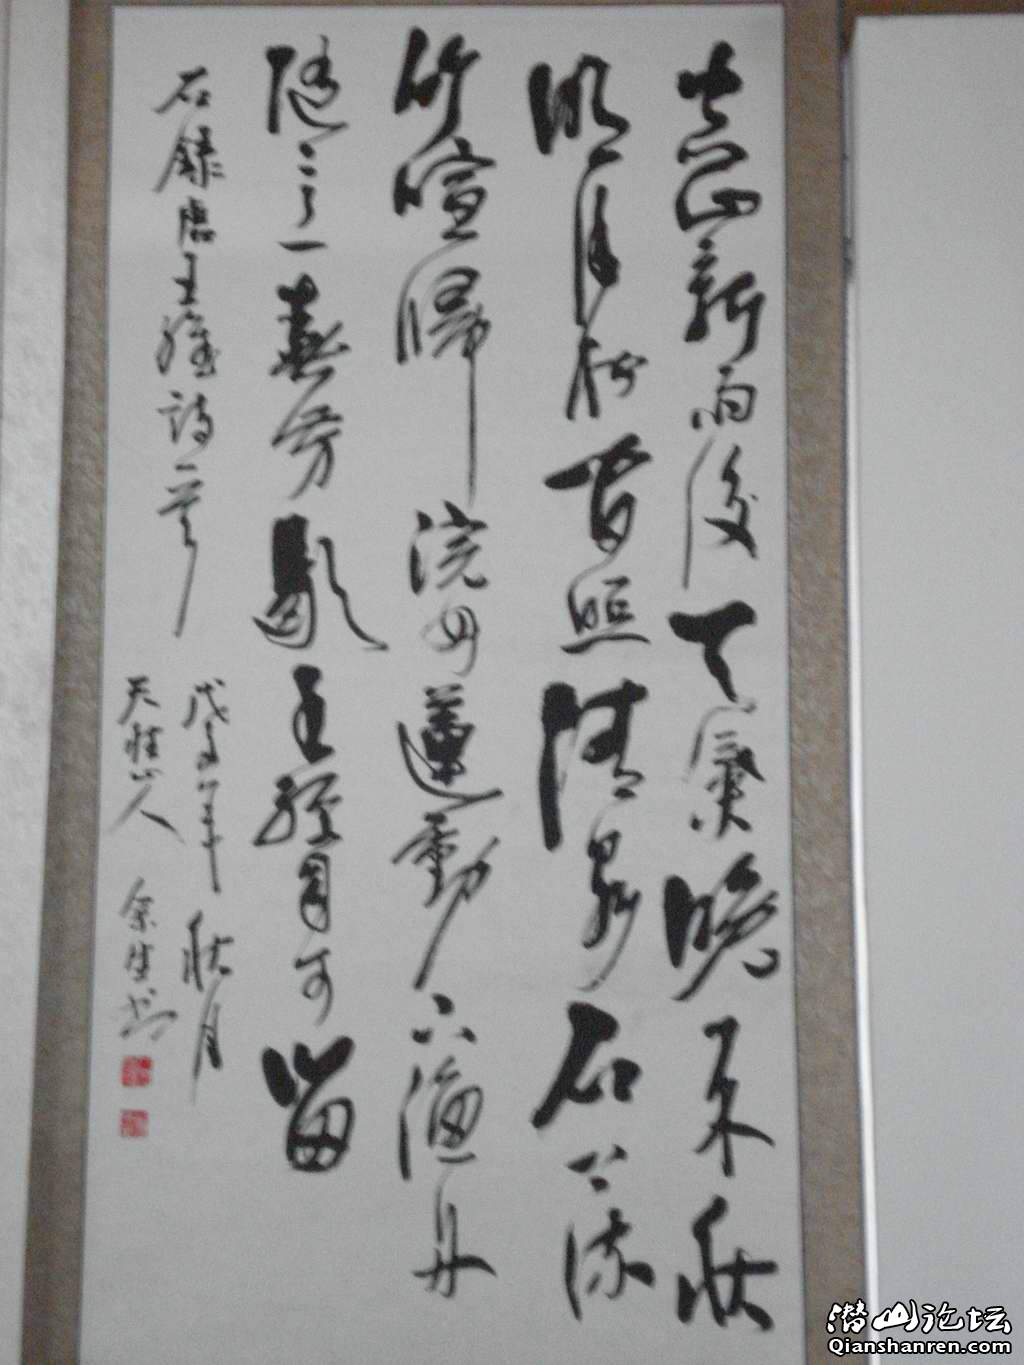 空山新雨後天氣晚來秋
明月松間照清泉石上流
竹喧歸浣女蓮動下漁舟
隨意春芳歇王孫自可留
右録唐王維詩一首 戊子年秋月
天柱山人 余生书
潜山论坛
Qianshanren.com